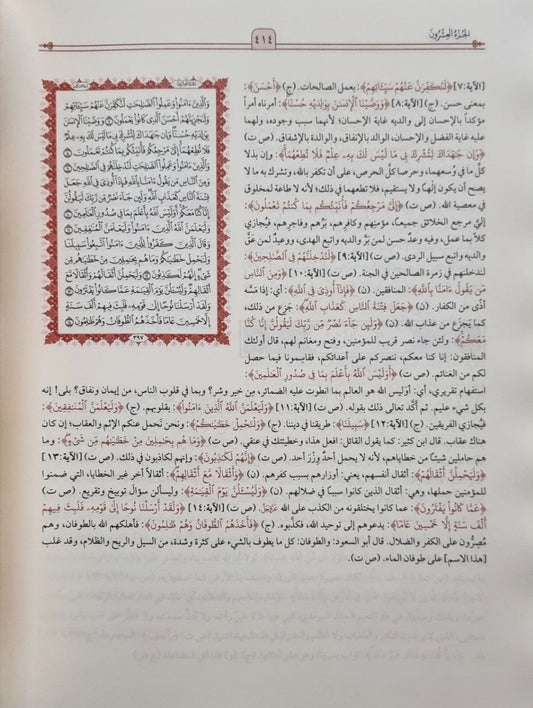 الجزء العشرون
٤١٤
وَالَّذِينَ ءَامَنُوا وَعَمِلُوا الصَّٰلِحَٰتِ لَنُكَفِّرَنَّ عَنْهُمْ سَيِّـَٔاتِهِمْ
وَلَنَجْزِيَنَّهُمْ أَحْسَنَ الَّذِي كَانُوا يَعْمَلُونَ ٧ وَوَصَّيْنَا الْإِنسَٰنَ
بِوَٰلِدَيْهِ حُسْنًا وَإِن جَٰهَدَاكَ لِتُشْرِكَ بِي مَا لَيْسَ لَكَ بِهِۦ عِلْمٌ
فَلَا تُطِعْهُمَا إِلَيَّ مَرْجِعُكُمْ فَأُنَبِّئُكُم بِمَا كُنتُمْ تَعْمَلُونَ ٨
وَالَّذِينَ ءَامَنُوا وَعَمِلُوا الصَّٰلِحَٰتِ لَنُدْخِلَنَّهُمْ فِي الصَّٰلِحِينَ ٩
وَمِنَ النَّاسِ مَن يَقُولُ ءَامَنَّا بِاللَّهِ فَإِذَا أُوذِيَ فِي اللَّهِ جَعَلَ
فِتْنَةَ النَّاسِ كَعَذَابِ اللَّهِ وَلَئِن جَاءَ نَصْرٌ مِّن رَّبِّكَ لَيَقُولُنَّ
إِنَّا كُنَّا مَعَكُمْ أَوَلَيْسَ اللَّهُ بِأَعْلَمَ بِمَا فِي صُدُورِ الْعَٰلَمِينَ ١٠
وَلَيَعْلَمَنَّ اللَّهُ الَّذِينَ ءَامَنُوا وَلَيَعْلَمَنَّ الْمُنَٰفِقِينَ ١١
وَقَالَ الَّذِينَ كَفَرُوا لِلَّذِينَ ءَامَنُوا اتَّبِعُوا سَبِيلَنَا
وَلْنَحْمِلْ خَطَٰيَٰكُمْ وَمَا هُم بِحَٰمِلِينَ مِنْ خَطَٰيَٰهُم مِّن
شَيْءٍ إِنَّهُمْ لَكَٰذِبُونَ ١٢ وَلَيَحْمِلُنَّ أَثْقَالَهُمْ وَأَثْقَالًا مَّعَ
أَثْقَالِهِمْ وَلَيُسْـَٔلُنَّ يَوْمَ الْقِيَٰمَةِ عَمَّا كَانُوا يَفْتَرُونَ ١٣
وَلَقَدْ أَرْسَلْنَا نُوحًا إِلَىٰ قَوْمِهِۦ فَلَبِثَ فِيهِمْ أَلْفَ سَنَةٍ
إِلَّا خَمْسِينَ عَامًا فَأَخَذَهُمُ الطُّوفَانُ وَهُمْ ظَٰلِمُونَ ١٤
٣٩٧
[الآية:٧] ﴿لَنُكَفِّرَنَّ عَنْهُمْ سَيِّـَٔاتِهِمْ﴾: بعمل الصالحات. (ج) ﴿أَحْسَنَ﴾:
بمعنى حسن. (ج) [الآية:٨] ﴿وَوَصَّيْنَا الْإِنسَٰنَ بِوَٰلِدَيْهِ حُسْنًا﴾: أمرناه أمراً
مؤكداً بالإحسان إلى والديه غاية الإحسان؛ لأنهما سبب وجوده، ولهما
عليه غاية الفضل والإحسان، الوالد بالإنفاق، والوالدة بالإشفاق. (ص ت)
﴿وَإِن جَٰهَدَاكَ لِتُشْرِكَ بِي مَا لَيْسَ لَكَ بِهِۦ عِلْمٌ فَلَا تُطِعْهُمَا﴾: وإن بذلا
كلَّ ما في وُسعهما، وحرصا كلَّ الحرص، على أن تكفر بالله، وتشرك به ما لا
يصح أن يكون إلٰهاً ولا يستقيم، فلا تطعهما في ذلك؛ لأنه لا طاعة لمخلوق
في معصية الله. (ص ت) ﴿إِلَيَّ مَرْجِعُكُمْ فَأُنَبِّئُكُم بِمَا كُنتُمْ تَعْمَلُونَ﴾:
إليَّ مرجع الخلائق جميعاً، مؤمنِهم وكافرِهم، بَرِّهم وفاجرِهم، فيُجازي
كلاً بما عمل، وفيه وعدٌ حسن لمن بَرَّ والديه واتبع الهدى، ووعيدٌ لمن عقَّ
والديه واتبع سبيل الردى. (ص ت) [الآية:٩] ﴿لَنُدْخِلَنَّهُمْ فِي الصَّٰلِحِينَ﴾:
لندخلنهم في زمرة الصالحين في الجنة. (ص ت) [الآية:١٠] ﴿وَمِنَ النَّاسِ
مَن يَقُولُ ءَامَنَّا بِاللَّهِ﴾: المنافقين. (ن) ﴿فَإِذَا أُوذِيَ فِي اللَّهِ﴾: أي: إذا مسَّه
أذًى من الكفار. (ن) ﴿جَعَلَ فِتْنَةَ النَّاسِ كَعَذَابِ اللَّهِ﴾: جَزِع من ذلك،
كما يَجزَع من عذاب الله. (ن) ﴿وَلَئِن جَاءَ نَصْرٌ مِّن رَّبِّكَ لَيَقُولُنَّ إِنَّا كُنَّا
مَعَكُمْ﴾: ولئن جاء نصر قريب للمؤمنين، وفتح ومغانم لهم، قال أولئك
المنافقون: إنا كنا معكم، ننصركم على أعدائكم، فقاسِمونا فيما حصل
لكم من الغنائم. (ص ت) ﴿أَوَلَيْسَ اللَّهُ بِأَعْلَمَ بِمَا فِي صُدُورِ الْعَٰلَمِينَ﴾:
استفهام تقريري، أي: أوليس الله هو العالم بما انطوت عليه الضمائر، مِن خير وشر؟ وبما في قلوب الناس، من إيمان ونفاق؟ بلى! إنه
بكل شيء عليم. ثم أكَّد تعالى ذلك بقوله. (ص ت) [الآية:١١] ﴿وَلَيَعْلَمَنَّ اللَّهُ الَّذِينَ ءَامَنُوا﴾: بقلوبهم. (ج) ﴿وَلَيَعْلَمَنَّ الْمُنَٰفِقِينَ﴾:
فيُجازي الفريقين. (ج) [الآية:١٢] ﴿سَبِيلَنَا﴾: طريقنا في ديننا. (ج) ﴿وَلْنَحْمِلْ خَطَٰيَٰكُمْ﴾: ونحن نَحمل عنكم الإثم والعقاب؛ إن كان
هناك عقاب. قال ابن كثير: كما يقول القائل: افعل هذا، وخطيئتك في عنقي. (ص ت) ﴿وَمَا هُم بِحَٰمِلِينَ مِنْ خَطَٰيَٰهُم مِّن شَيْءٍ﴾: وما
هم حاملين شيئاً من خطاياهم؛ لأنه لا يحمل أحدٌ وِزْرَ أحد. (ص ت) ﴿إِنَّهُمْ لَكَٰذِبُونَ﴾: وإنهم لكاذبون في ذلك. (ص ت) [الآية:١٣]
﴿وَلَيَحْمِلُنَّ أَثْقَالَهُمْ﴾: أثقال أنفسهم، يعني: أوزارهم بسبب كفرهم. (ن) ﴿وَأَثْقَالًا مَّعَ أَثْقَالِهِمْ﴾: أثقالاً أخر غير الخطايا، التي ضمنوا
للمؤمنين حملها، وهي: أثقال الذين كانوا سبباً في ضلالهم. (ن) ﴿وَلَيُسْـَٔلُنَّ يَوْمَ الْقِيَٰمَةِ﴾: وليسألن سؤال توبيخ وتقريع. (ص ت)
﴿عَمَّا كَانُوا يَفْتَرُونَ﴾: عما كانوا يختلقونه من الكذب على الله عز وجل. (ص ت) [الآية:١٤] ﴿وَلَقَدْ أَرْسَلْنَا نُوحًا إِلَىٰ قَوْمِهِۦ فَلَبِثَ فِيهِمْ
أَلْفَ سَنَةٍ إِلَّا خَمْسِينَ عَامًا﴾: يدعوهم إلى توحيد الله، فكذَّبوه. (ج) ﴿فَأَخَذَهُمُ الطُّوفَانُ وَهُمْ ظَٰلِمُونَ﴾: فأهلكهم الله بالطوفان، وهم
مُصِرُّون على الكفر والضلال. قال أبو السعود: والطوفان: كل ما يطوف بالشيء على كثرة وشدة، من السيل والريح والظلام، وقد غلب
[هذا الاسم] على طوفان الماء. (ص ت).